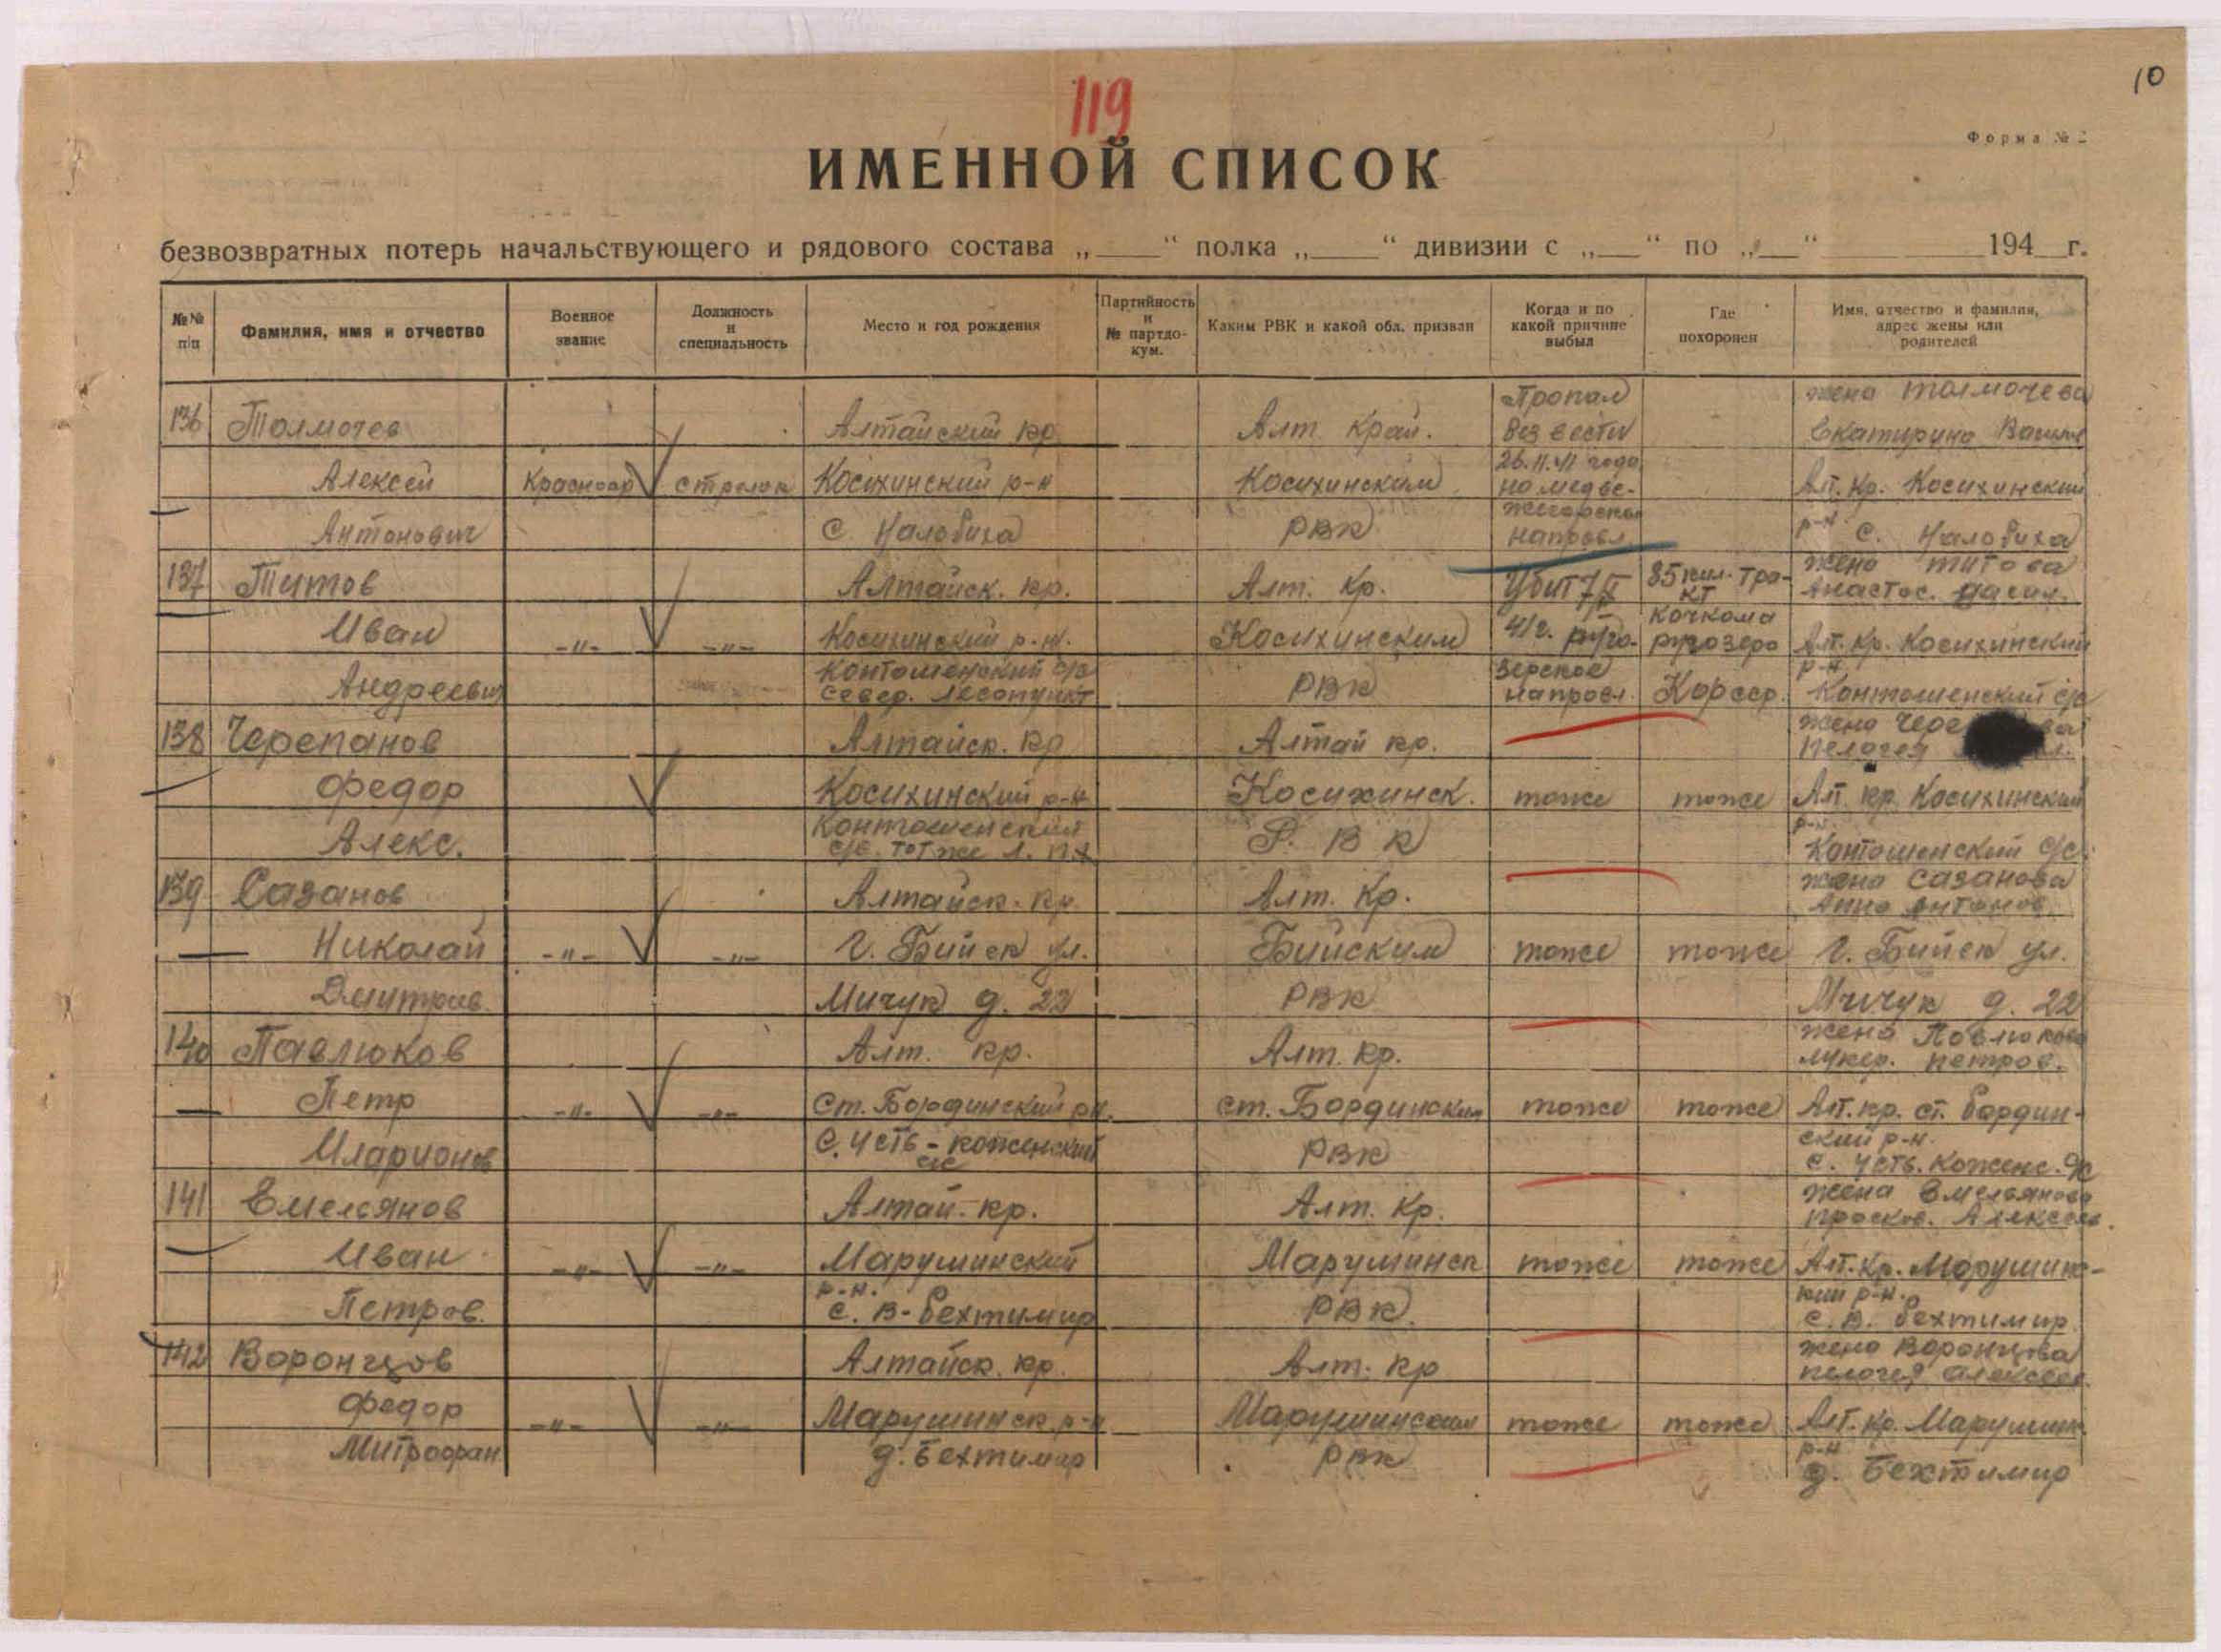 10
119
Форма № 2
ИМЕННОЙ СПИСОК
безвозвратных потерь начальствующего и рядового состава „____“ полка „____“ дивизии с „___“ по „___“ 194__г.
№№ п/п Фамилия, имя и отчество Военное звание Должность и специальность Место и год рождения Партийность и № партдокум. Каким РВК и какой обл. призван Когда и по какой причине выбыл Где похоронен Имя, отчество и фамилия, адрес жены или родителей
Пропал жена Толмочева
136 Толмочев Алтайский кр Алт. Край. без вести Екатирина
26.11.41 года
Алексей Красноар стрелок Косихинский р-н Косихинским на медве- Алт. Кр. Косихинский
Антонович с. Налобиха РВК направл. р-н с. Налобиха
жена Титова
137 Титов Алтайск. кр. Алт. Кр. Убит 7/X 85 кил. тра- Анастос.
кт
Кочкома
Иван -"- -"- Косихинский р-н. Косихинским 41г. руго- ругозеро Алт. Кр. Косихинский
Контошенский с/с зерское р-н
Андреевич север. лесопункт РВК направл. Карсср. Контошенский с/с
жена Чере
138 Черепанов Алтайск. кр Алтай кр. пелогея
Федор Косихинский р-н Косихинск. тоже тоже Алт. кр. Косихинский
Контошенский р-н
Алекс. с/с. тот же л. Р. В К Контошенский с/с.
жена Сазанова
139 Сазанов Алтайск. кр. Алт. Кр. Анна Антонов.
Николай -"- -"- г. Бийск ул. Бийским тоже тоже г. Бийск ул.
Дмитрив. Мичук д. 22 РВК Мичук д. 22
жена Повлюкова
140 Павлюков Алт. кр. Алт. кр. лукер. петров.
Петр -"- -"- Ст. Бординский рн. ст. Бординским тоже тоже Алт. кр. ст. бордин-
с. усть-коженский ский р-н.
Иларионов с/с РВК с. усть. Коженс. с/с
жена Емельянова
141 Емельянов Алтай. кр. Алт. Кр. просков. Алексеев.
Иван -"- -"- Марушинский Марушинск тоже тоже Алт. Кр. Марушинс-
р-н. кий р-н.
Петров. с. В-Бехтимир РВК. с. В. Бехтимир
жена Воронцова
142 Воронцов Алтайск. кр. Алт. кр пелогея Алексеев.
Федор -"- -"- Марушинск р-н Марушинским тоже тоже Алт. Кр. Марушин.
р-н
Митрофан д. Бехтимир РВК д. Бехтимир